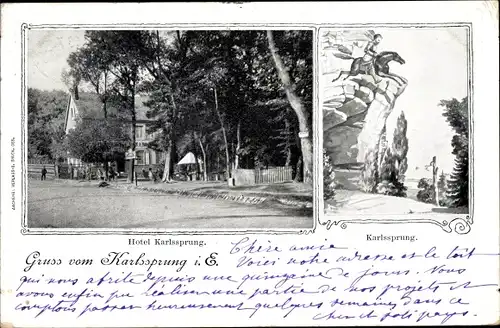 Hotel Karlssprung.
Karlssprung.
Gruss vom Karlssprung i. E.
Chère amie
Voici notre adresse et le toit
qui nous abrite depuis une quinzaine de jours. Nous
avons enfin pu réaliser une partie de nos projets et
comptons passer heureusement quelques semaines dans ce
cher et joli pays.